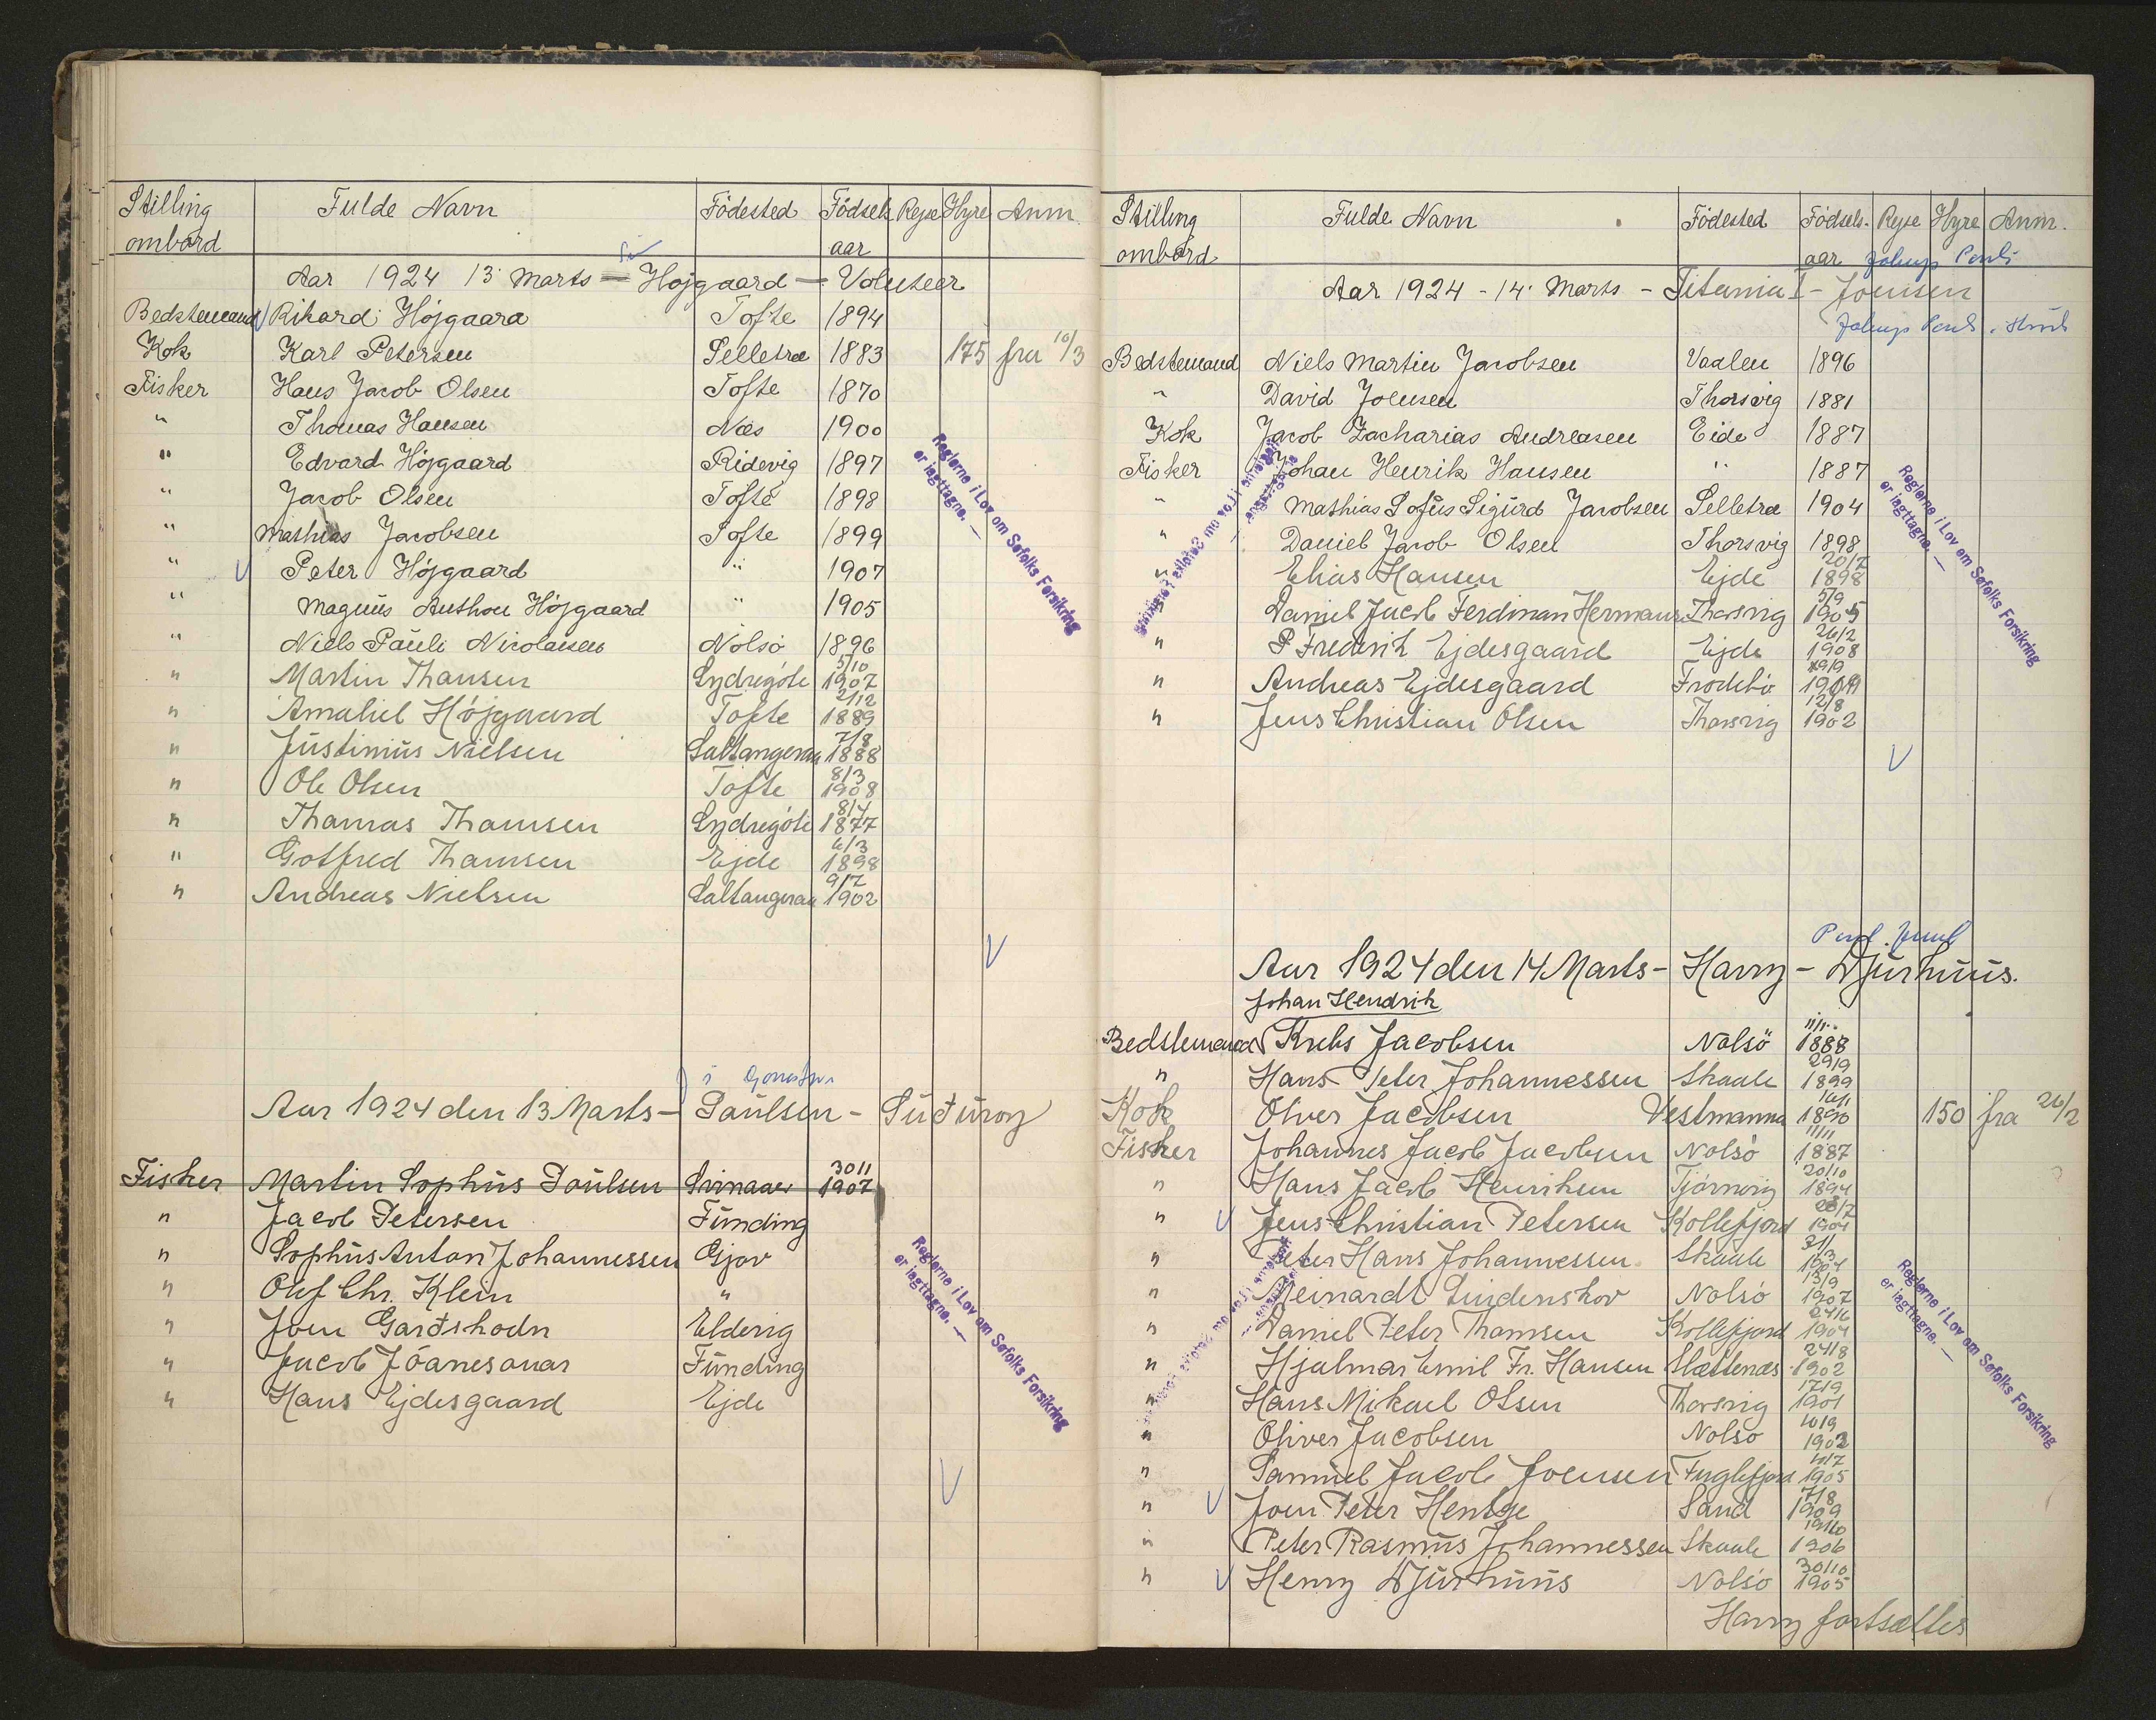 Stilling ombord Fulde Navn Födested Födsels aar Rejse Hyre Anm
Aar 1924 13 Marts - Højgaard - Voluteer
Bedstemand Rikard Højgaard Tofte 1894
Kok Karl Petersen Selletræ 1883 175 fra 10/3
Fisker Hans Jacob Olsen Tofte 1870
" Thomas Hansen Næs 1900
" Edvard Højgaard Ridevig 1897
" Jacob Olsen Tofte 1898
" Mathias Jacobsen Tofte 1899
" Peter Højgaard " 1907
" Magnus Anthon Højgaard " 1905
" Niels Pauli Nicolaisen Nolsö 1896
" Martin Thomsen Sydregöte 5/10 1907
" Amaliel Højgaard Tofte 21/12 1889
" Justinus Nielsen Saltangeraa 7/8 1888
" Ole Olsen Tofte 8/3 1908
" Thomas Thomsen Sydregöte 8/4 1877
" Gotfred Thomsen Ejde 6/3 1898
" Andreas Nielsen Saltangeraa 9/7 1902
Reglerne i Lov om Søfolks Forsikring
er iagttagne. —
Aar 1924 den 13 Marts - Paulsen - Suduroy
Fisker Martin Sophus Poulsen Svinaaer 30 11 1907
" Jacob Petersen Funding
" Sophus Anton Johannessen Gjov
" Olef Chr. Klein "
" Joen Gardshodn Elderig
" Jacob Jóanesonar Funding
" Hans Ejdesgaard Ejde
Reglerne i Lov om Søfolks Forsikring
er iagttagne. —
Stilling ombord Fulde Navn Födested Födsels- aar Rejse Hyre Anm.
Aar 1924 - 14 Marts - Titania I - Joensen
Bedstemand Niels Martin Jacobsen Vaalen 1896
" David Joensen Thorsvig 1881
Kok Jacob Zacharias Andreasen Eide 1887
Fisker Johan Henrik Hansen " 1887
" Mathias Sofus Sigurd Jacobsen Selletræ 1904
" Daniel Jacob Olsen Thorsvig 1898
" Elias Hansen Ejde 20/7 1898
" Daniel Jacob Ferdinan Hermansen Thorsvig 5/9 1905
" P Frederik Ejdesgaard Ejde 26/2 1908
" Andreas Ejdesgaard Frodebö
" Jens Christian Olsen Thorsvig 12/8 1902
Reglerne i Lov om Søfolks Forsikring
er iagttagne. —
Aar 1924 den 14 Marts - Harry - Djurhuus.
Johan Hendrik
Bedstemand Krebs Jacobsen Nolsö 1888
" Hans Peter Johannessen Skaale 29/9 1899
Kok Oliver Jacobsen Vestmanna 1890 150 fra 26/2
Fisker Johannes Jacob Jacobsen Nolsö 11/11 1887
" Hans Jacob Henriksen Tjörnevig 20/10 1894
" Jens Christian Petersen Kollefjord 1904
" Peter Hans Johannessen Skaale
" Meinardt Lindenskov Nolsö 13/9 1907
" Daniel Peter Thomsen Kollefjord 24/6 1904
" Hjalmar Emil Fr. Hansen Slættenæs 24/8 1902
" Hans Mikael Olsen Thorsvig 17/9 1901
" Oliver Jacobsen Nolsö 10/9
" Samuel Jacob Joensen Fuglefjord 1905
" Joen Peter Hentze Sand 7/8 1909
" Peter Rasmus Johannessen Skaale 19/10 1906
" Henry Djurhuus Nolsö 30/10 1905
Reglerne i Lov om Søfolks Forsikring
er iagttagne. —
Harry fortsættes